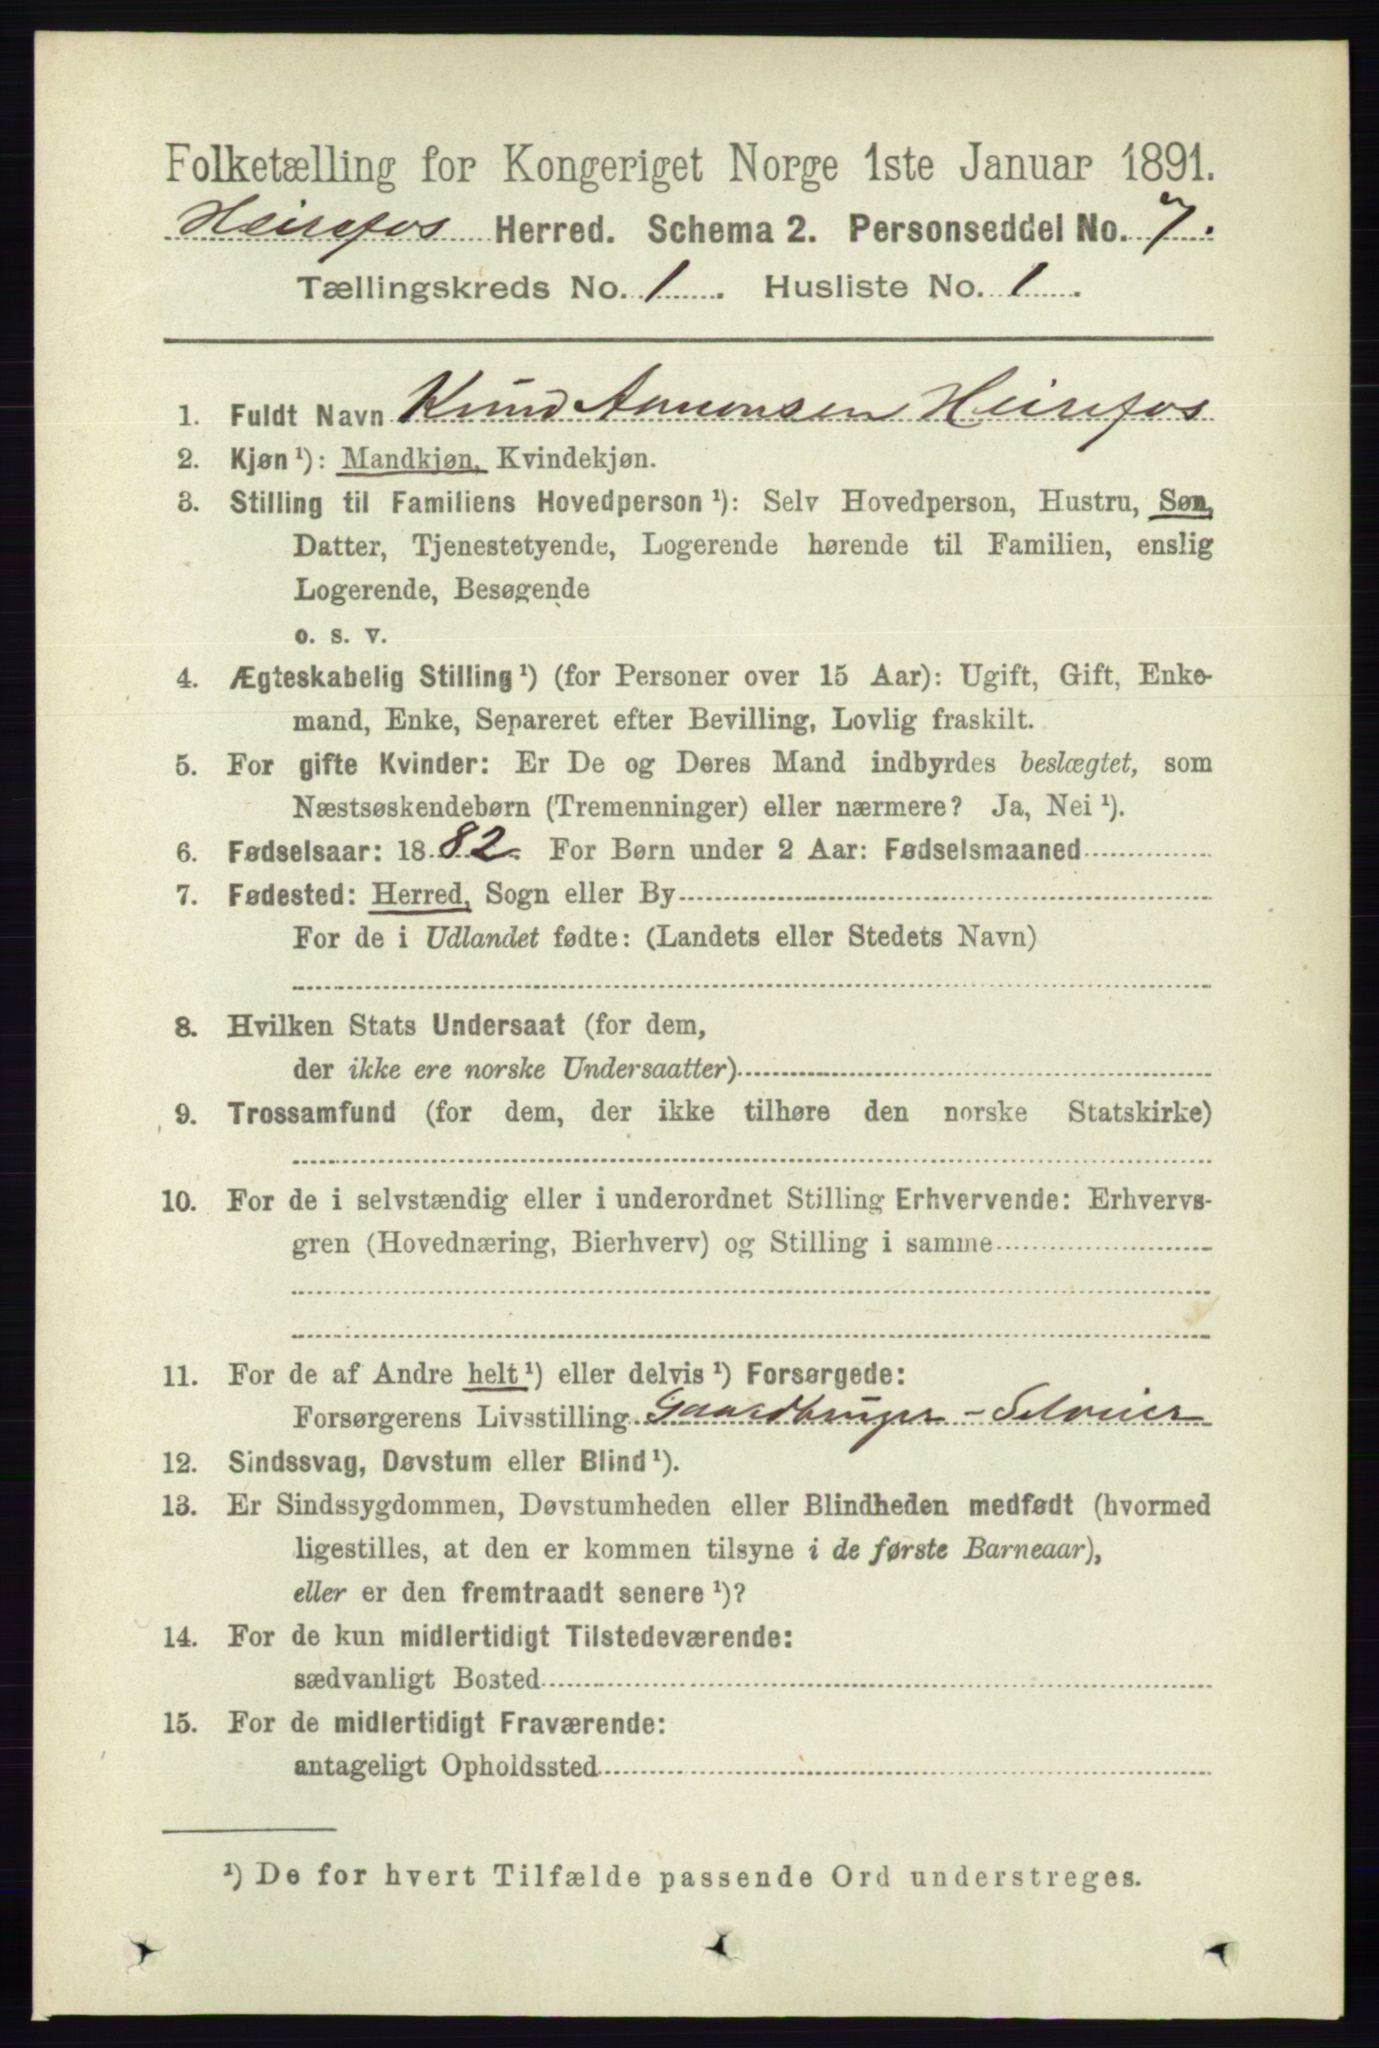 Folketælling for Kongeriget Norge 1ste Januar 1891.
Heirefos Herred. Schema 2. Personseddel No. 7.
Tællingskreds No. 1. Husliste No. 1.
1. Fuldt Navn Knud Amonsen Heirefos
2. Kjøn ¹): Mandkjøn, Kvindekjøn.
3. Stilling til Familiens Hovedperson ¹): Selv Hovedperson, Hustru, Søn,
Datter, Tjenestetyende, Logerende hørende til Familien, enslig
Logerende, Besøgende
o. s. v.
4. Ægteskabelig Stilling ¹) (for Personer over 15 Aar): Ugift, Gift, Enke-
mand, Enke, Separeret efter Bevilling, Lovlig fraskilt.
5. For gifte Kvinder: Er De og Deres Mand indbyrdes beslægtet, som
Næstsøskendebørn (Tremenninger) eller nærmere? Ja, Nei ¹).
6. Fødselsaar: 1882. For Børn under 2 Aar: Fødselsmaaned
7. Fødested: Herred, Sogn eller By
For de i Udlandet fødte: (Landets eller Stedets Navn)
8. Hvilken Stats Undersaat (for dem,
der ikke ere norske Undersaatter)
9. Trossamfund (for dem, der ikke tilhøre den norske Statskirke)
10. For de i selvstændig eller i underordnet Stilling Erhvervende: Erhvervs-
gren (Hovednæring, Bierhverv) og Stilling i samme
11. For de af Andre helt ¹) eller delvis ¹) Forsørgede:
Forsørgerens Livsstilling Gaardbruger - Selveier
12. Sindssvag, Døvstum eller Blind ¹).
13. Er Sindssygdommen, Døvstumheden eller Blindheden medfødt (hvormed
ligestilles, at den er kommen tilsyne i de første Barneaar),
eller er den fremtraadt senere ¹)?
14. For de kun midlertidigt Tilstedeværende:
sædvanligt Bosted
15. For de midlertidigt Fraværende:
antageligt Opholdssted
¹) De for hvert Tilfælde passende Ord understreges.